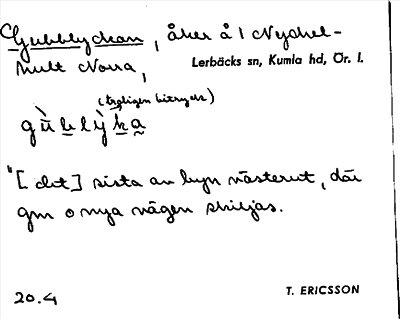 Gubblyckan, åker å 1 Nyckel-
hult Norra,
Lerbäcks sn, Kumla hd, Ör. l.
(troligen bitryck)
"[det] sista av byn västerut, där
gm o nya vägen skiljas.
20.4
T. ERICSSON